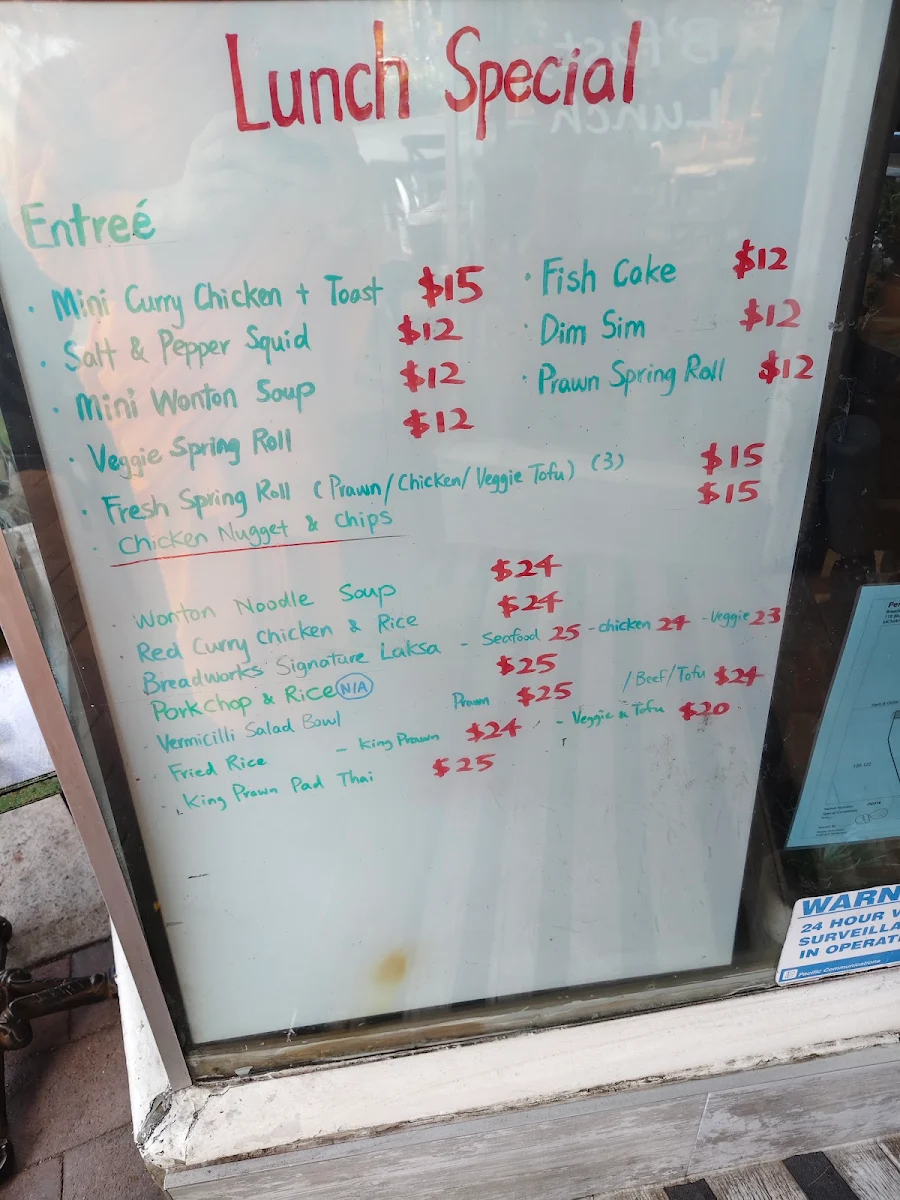 Lunch Special
Entreé
· Mini Curry Chicken + Toast $15
· Salt & Pepper Squid $12
· Mini Wonton Soup $12
· Veggie Spring Roll $12
· Fish Cake $12
· Dim Sim $12
· Prawn Spring Roll $12
· Fresh Spring Roll (Prawn/Chicken/Veggie Tofu) (3) $15
· Chicken Nugget & Chips $15
· Wonton Noodle Soup $24
· Red Curry Chicken & Rice $24
· Breadworks Signature Laksa - Seafood 25 - chicken 24 - Veggie 23
· Pork Chop & Rice N/A $25
· Vermicilli Salad Bowl Prawn $25 / Beef/Tofu $24
· Fried Rice - King Prawn $24 - Veggie & Tofu $20
· King Prawn Pad Thai $25
B'fast
Lunch
WARN
24 HOUR V
SURVEILLA
IN OPERAT
Pacific Communications